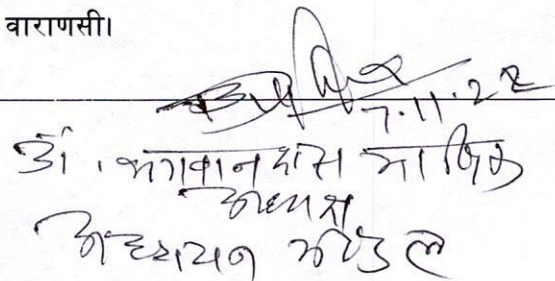 वाराणसी।
7.11.22
डॉ. भगवान दास
अध्यक्ष
अध्ययन मंडल